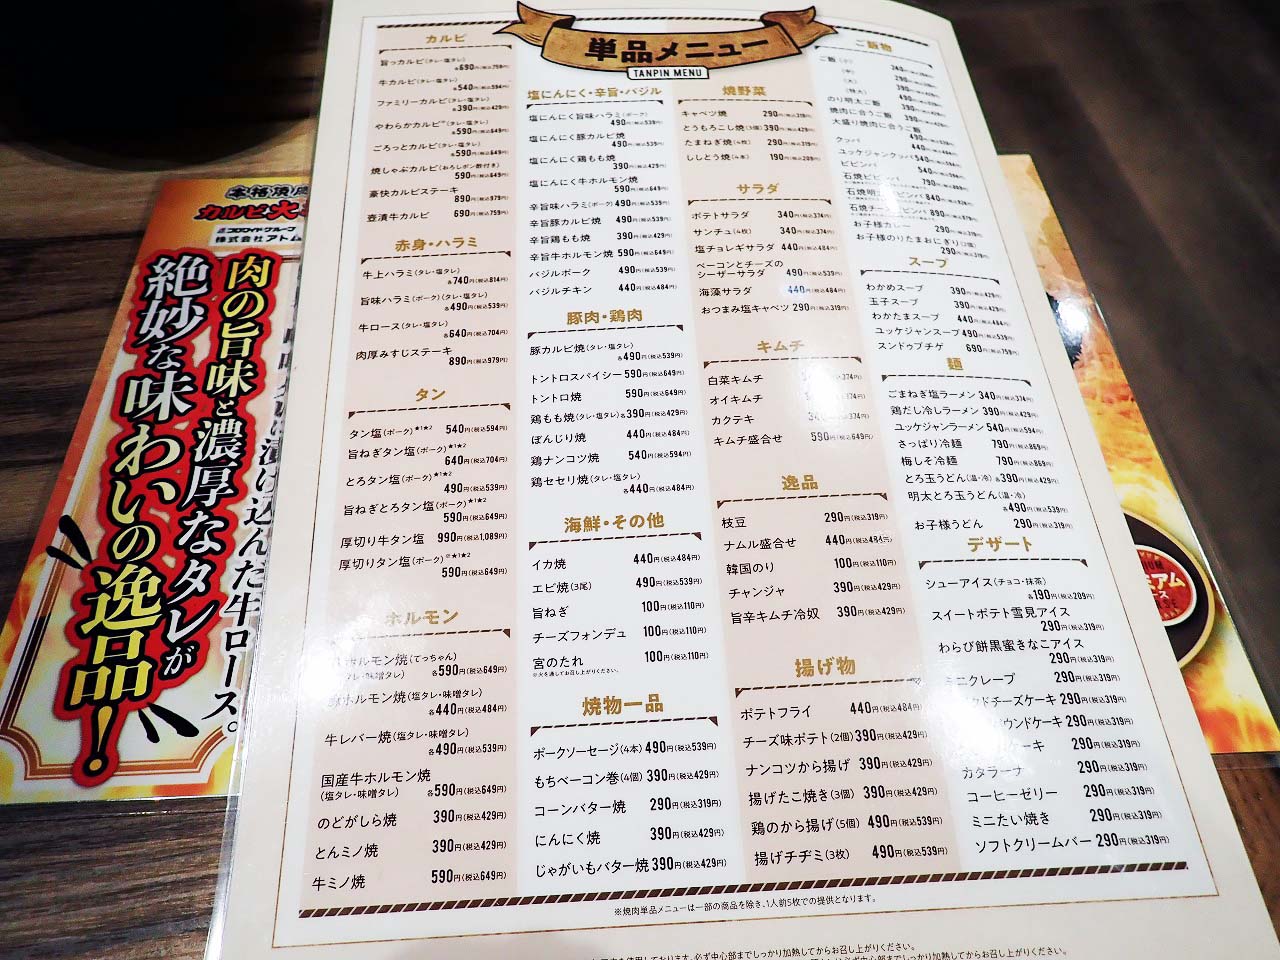 単品メニュー
TANPIN MENU
カルビ
旨っカルビ(タレ・塩タレ)
各690円(税込759円)
牛カルビ(タレ・塩タレ)
各540円(税込594円)
ファミリーカルビ(タレ・塩タレ)
各390円(税込429円)
やわらかカルビ※(タレ・塩タレ)
各590円(税込649円)
ごろっとカルビ(タレ・塩タレ)
各590円(税込649円)
焼しゃぶカルビ(おろしポン酢付き)
590円(税込649円)
豪快カルビステーキ
890円(税込979円)
壺漬牛カルビ 690円(税込759円)
赤身・ハラミ
牛上ハラミ(タレ・塩タレ)
各740円(税込814円)
旨味ハラミ(ポーク)(タレ・塩タレ)
各490円(税込539円)
牛ロース(タレ・塩タレ)
各640円(税込704円)
肉厚みすじステーキ
890円(税込979円)
タン
タン塩(ポーク)★1★2 540円(税込594円)
旨ねぎタン塩(ポーク)★1★2
640円(税込704円)
とろタン塩(ポーク)★1★2
490円(税込539円)
旨ねぎとろタン塩(ポーク)★1★2
590円(税込649円)
厚切り牛タン塩 990円(税込1,089円)
厚切りタン塩(ポーク)※★1★2
590円(税込649円)
ホルモン
ホルモン焼(てっちゃん)
(塩タレ・味噌タレ) 各590円(税込649円)
豚ホルモン焼(塩タレ・味噌タレ)
各440円(税込484円)
牛レバー焼(塩タレ・味噌タレ)
各490円(税込539円)
国産牛ホルモン焼
(塩タレ・味噌タレ) 各590円(税込649円)
のどがしら焼 390円(税込429円)
とんミノ焼 390円(税込429円)
牛ミノ焼 590円(税込649円)
塩にんにく・辛旨・バジル
塩にんにく旨味ハラミ(ポーク)
490円(税込539円)
塩にんにく豚カルビ焼
490円(税込539円)
塩にんにく鶏もも焼
390円(税込429円)
塩にんにく牛ホルモン焼
590円(税込649円)
辛旨味ハラミ(ポーク) 490円(税込539円)
辛旨豚カルビ焼 490円(税込539円)
辛旨鶏もも焼 390円(税込429円)
辛旨牛ホルモン焼 590円(税込649円)
バジルポーク 490円(税込539円)
バジルチキン 440円(税込484円)
豚肉・鶏肉
豚カルビ焼(タレ・塩タレ)
各490円(税込539円)
トントロスパイシー 590円(税込649円)
トントロ焼 590円(税込649円)
鶏もも焼(タレ・塩タレ)各390円(税込429円)
ぼんじり焼 440円(税込484円)
鶏ナンコツ焼 540円(税込594円)
鶏セセリ焼(タレ・塩タレ)
各440円(税込484円)
海鮮・その他
イカ焼 440円(税込484円)
エビ焼(3尾) 490円(税込539円)
旨ねぎ 100円(税込110円)
チーズフォンデュ 100円(税込110円)
宮のたれ 100円(税込110円)
※火を通してお召し上がりください。
焼物一品
ポークソーセージ(4本) 490円(税込539円)
もちベーコン巻(4個) 390円(税込429円)
コーンバター焼 290円(税込319円)
にんにく焼 390円(税込429円)
じゃがいもバター焼 390円(税込429円)
焼野菜
キャベツ焼 290円(税込319円)
とうもろこし焼(3個) 390円(税込429円)
たまねぎ焼(4枚) 290円(税込319円)
ししとう焼(4本) 190円(税込209円)
サラダ
ポテトサラダ 340円(税込374円)
サンチュ(4枚) 340円(税込374円)
塩チョレギサラダ 440円(税込484円)
ベーコンとチーズの
シーザーサラダ 490円(税込539円)
海藻サラダ 440円(税込484円)
おつまみ塩キャベツ 290円(税込319円)
キムチ
白菜キムチ
オイキムチ
カクテキ
キムチ盛合せ 590円(税込649円)
逸品
枝豆 290円(税込319円)
ナムル盛合せ 440円(税込484円)
韓国のり 100円(税込110円)
チャンジャ 390円(税込429円)
旨辛キムチ冷奴 390円(税込429円)
揚げ物
ポテトフライ 440円(税込484円)
チーズ味ポテト(2個) 390円(税込429円)
ナンコツから揚げ 390円(税込429円)
揚げたこ焼き(3個) 390円(税込429円)
鶏のから揚げ(5個) 490円(税込539円)
揚げチヂミ(3枚) 490円(税込539円)
ご飯物
ご飯(小)
(中)
(大)
(特大)
のり明太ご飯
焼肉に合うご飯
大盛り焼肉に合うご飯
490円(税込539円)
クッパ 440円(税込484円)
ユッケジャンクッパ 540円(税込594円)
ビビンバ
石焼ビビンバ 790円
石焼明太
石焼チーズビビンバ 890円(税込979円)
お子様カレー
お子様のりたまおにぎり(2個)
290円(税込319円)
スープ
わかめスープ 390円(税込429円)
玉子スープ 390円(税込429円)
わかたまスープ 440円(税込484円)
ユッケジャンスープ 490円(税込539円)
スンドゥブチゲ 690円(税込759円)
麺
ごまねぎ塩ラーメン 340円(税込374円)
鶏だし冷しラーメン 390円(税込429円)
ユッケジャンラーメン 540円(税込594円)
さっぱり冷麺 790円(税込869円)
梅しそ冷麺 790円(税込869円)
とろ玉うどん(温・冷) 各390円(税込429円)
明太とろ玉うどん(温・冷)
各490円(税込539円)
お子様うどん 290円(税込319円)
デザート
シューアイス(チョコ・抹茶)
各190円(税込209円)
スイートポテト雪見アイス
290円(税込319円)
わらび餅黒蜜きなこアイス
290円(税込319円)
ミニクレープ 290円(税込319円)
ドチーズケーキ 290円(税込319円)
ウンドケーキ 290円(税込319円)
ケーキ 290円(税込319円)
カタラーナ 290円(税込319円)
コーヒーゼリー 290円(税込319円)
ミニたい焼き 290円(税込319円)
ソフトクリームバー 290円(税込319円)
※焼肉単品メニューは一部の商品を除き、1人前5枚での提供となります。
使用しております。必ず中心部までしっかり加熱してからお召し上がりください。
必ず中心部までしっかり加熱してからお召し上がりください。
本格焼肉
カルビ大
コロワイドグループ
株式会社アトム
肉の旨味と濃厚なタレが
絶妙な味わいの逸品!
漬け込んだ牛ロース。